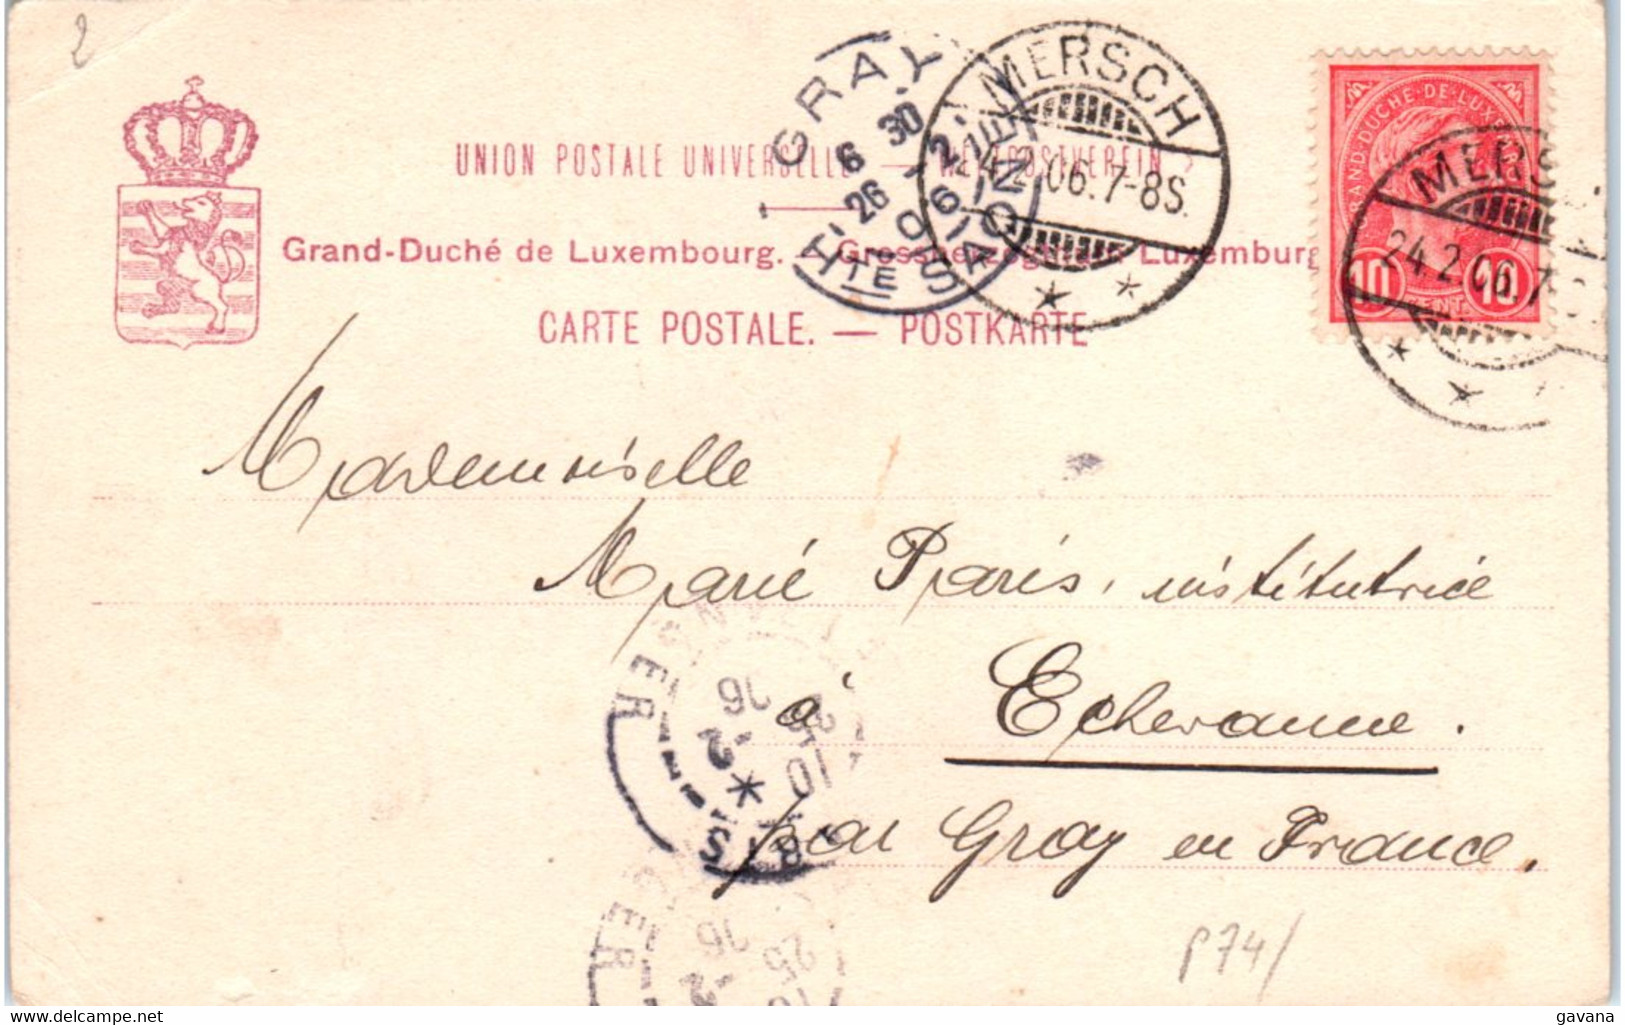 2
GRAY
6 30
26 - 2
06
HTE SAONE
MERSCH
24.2.06.7-8S.
GRAND-DUCHÉ-DE-LUXEM
MERS
24.2.06.7
10 CENT. 10
UNION POSTALE UNIVERSELLE — WELTPOSTVEREIN
Grand-Duché de Luxembourg. — Grossherzogtum Luxemburg
CARTE POSTALE. — POSTKARTE
Mademoiselle
Marie Paris, institutrice
à Echevanne.
par Gray en France.
10
25
-2
06
25
-2
06
p74/
delcampe.net
gavana